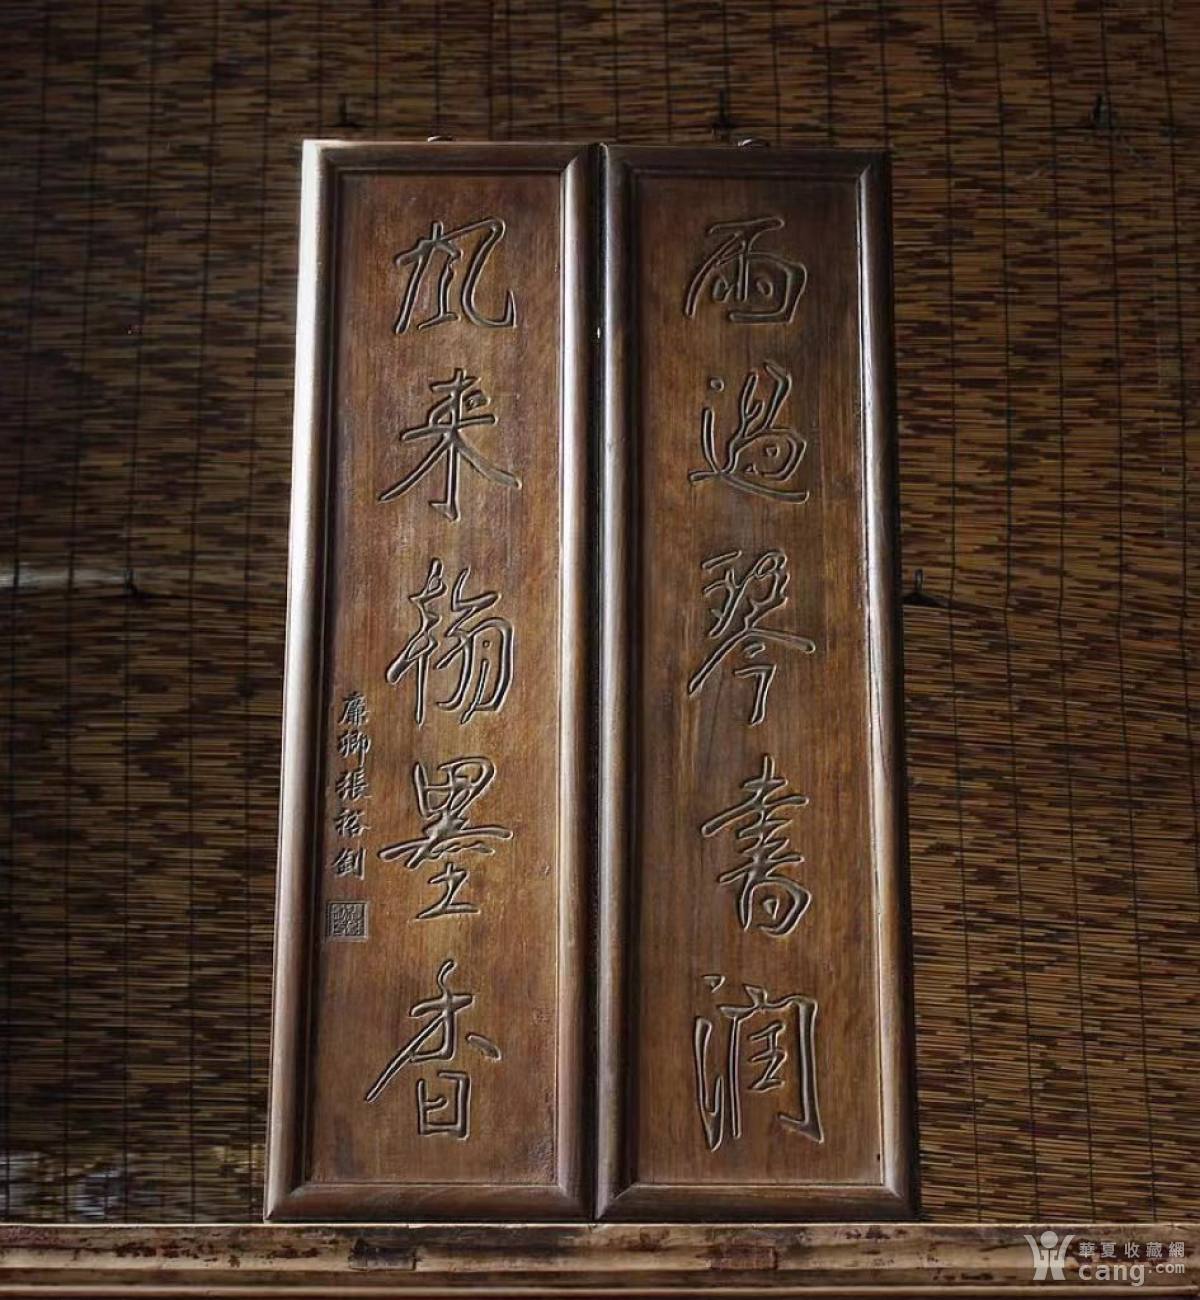 雨過琴書潤
風来翰墨香
廉卿張裕釗
華夏收藏網
cang.com